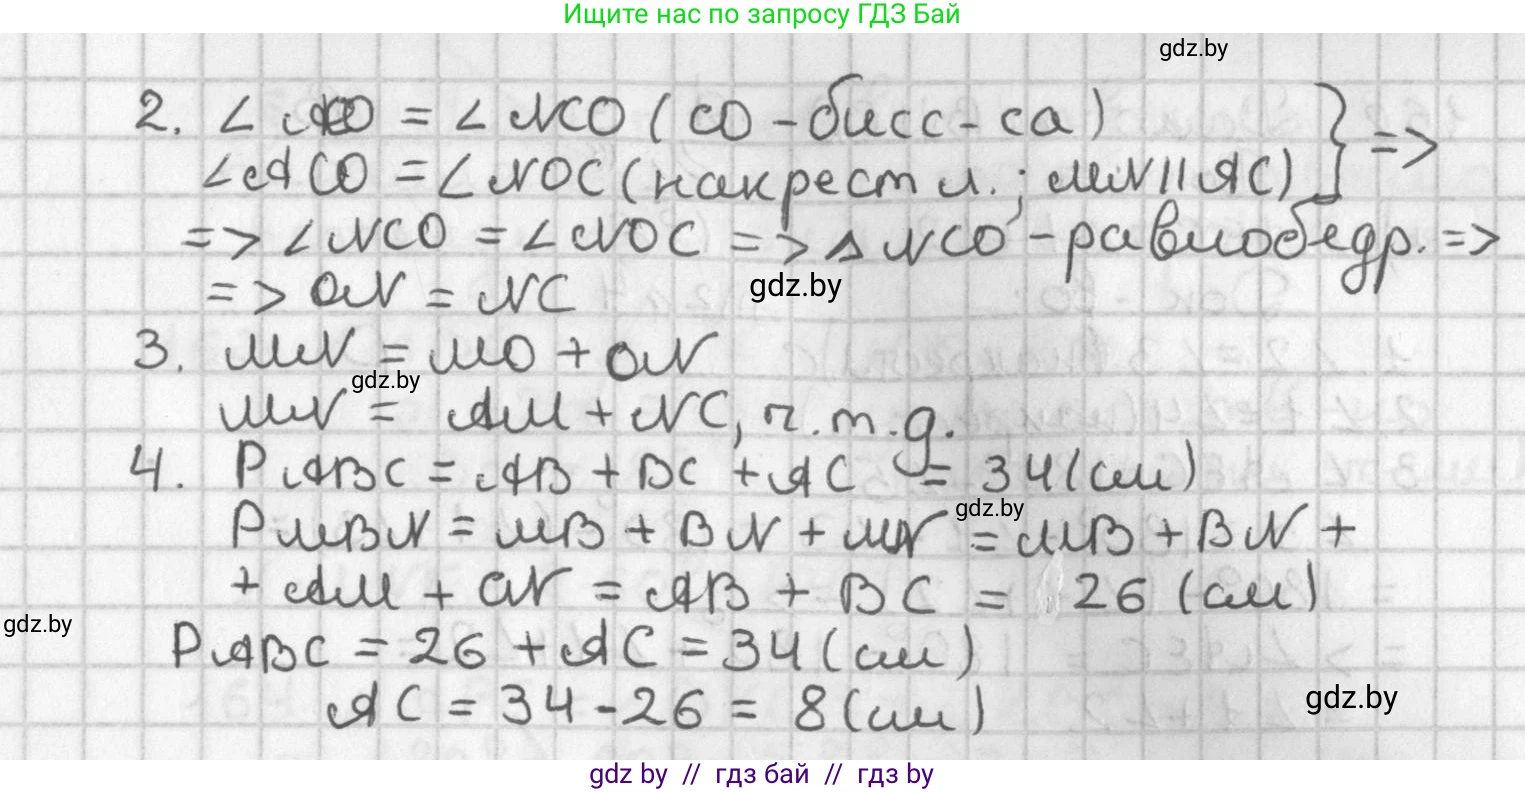 Ищите нас по запросу ГДЗ Бай
gdz.by
2. ∠ACO = ∠NCO (CO - бисс-са) } =>
∠ACO = ∠NOC (накрест л.; MN || AC)
=> ∠NCO = ∠NOC => △ NCO - равнобедр. =>
gdz.by
=> ON = NC
3. MN = MO + ON
gdz.by
MN = AM + NC, ч.т.д.
4. PABC = AB + BC + AC = 34 (см)
gdz.by
PMBN = MB + BN + MN = MB + BN +
+ AM + ON = AB + BC = 26 (см)
gdz.by
PABC = 26 + AC = 34 (см)
gdz.by
AC = 34 - 26 = 8 (см)
gdz by // гдз бай // гдз by